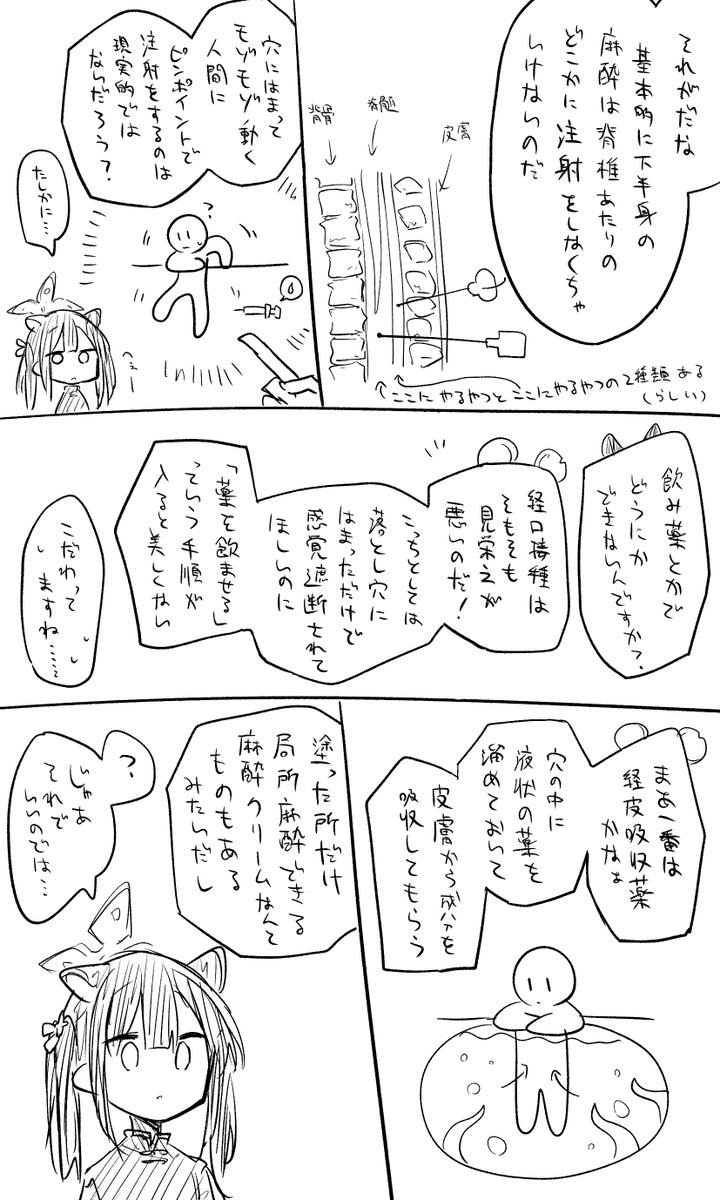 それがだな
基本的に下半身の
麻酔は脊椎あたりの
どこかに注射をしなくちゃ
いけないのだ
皮膚
脊髄
背骨
ここにやるやつとここにやるやつの2種類ある
(らしい)
穴にはまって
モゾモゾ動く
人間に
ピンポイントで
注射をするのは
現実的では
ないだろう?
?
たしかに…
へぇー
飲み薬とかで
どうにか
できないんですか?
経口接種は
そもそも
見栄えが
悪いのだ!
こっちとしては
落とし穴に
はまっただけで
感覚遮断されて
ほしいのに
「薬を飲ませる」
っていう手順が
入ると美しくない
こだわって
ますね……
まあ一番は
経皮吸収薬
かなぁ
穴の中に
液状の薬を
溜めておいて
皮膚から成分を
吸収してもらう
塗った所だけ
局所麻酔できる
麻酔クリームなんて
ものもある
みたいだし
?
じゃあ
それで
いいのでは…